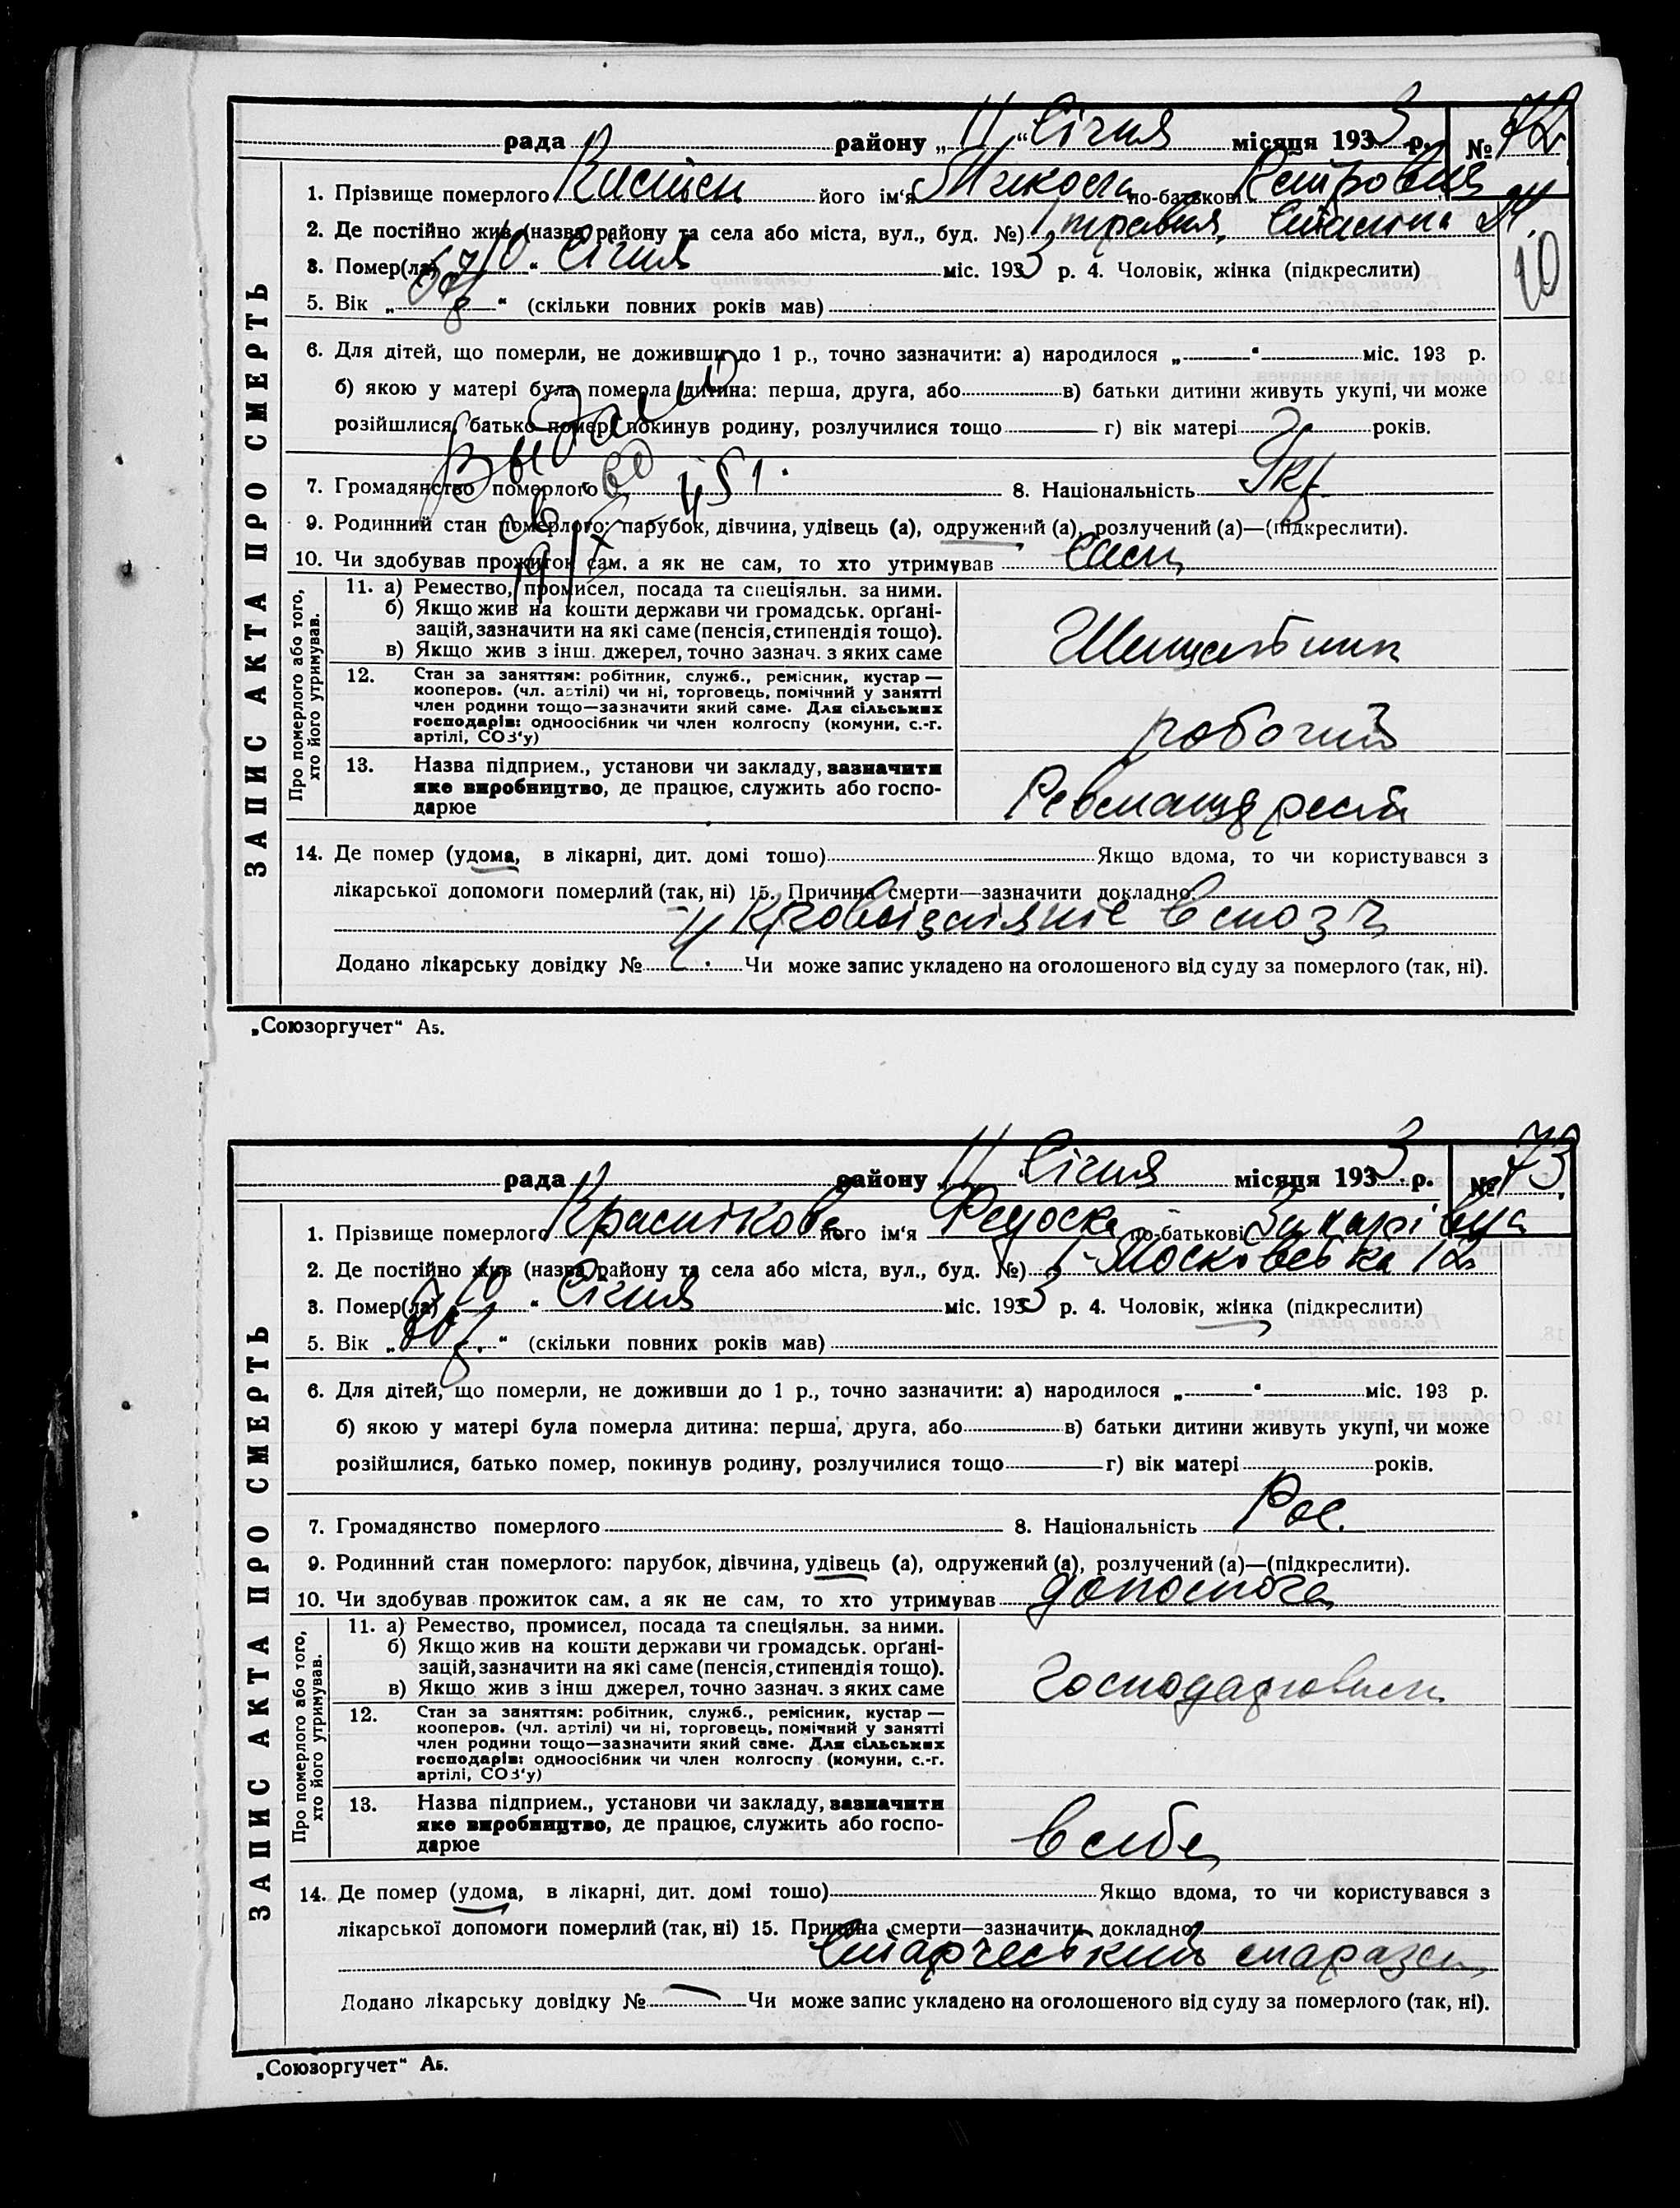 рада району „11“ Січня місяця 1933 р. № 72
1. Прізвище померлого його ім'я Микола по-батькові Петрович
2. Де постійно жив (назва району та села або міста, вул., буд. №) 1 травня, Сталіна 24
3. Помер(ла) „10“ Січня міс. 1933 р. 4. Чоловік, жінка (підкреслити)
10
5. Вік „67 р“ (скільки повних років мав)
6. Для дітей, що померли, не доживши до 1 р., точно зазначити: а) народилося „ “ міс. 193 р.
б) якою у матері була померла дитина: перша, друга, або в) батьки дитини живуть укупі, чи може
розійшлися, батько помер, покинув родину, розлучилися тощо г) вік матері років.
Выдано
7. Громадянство померлого 8. Національність Укр
9. Родинний стан померлого: парубок, дівчина, удівець (а), одружений (а), розлучений (а)—(підкреслити).
10. Чи здобував прожиток сам, а як не сам, то хто утримував сам
ЗАПИС АКТА ПРО СМЕРТЬ
Про померлого або того, хто його утримував.
11. а) Ремество, промисел, посада та спеціяльн. за ними.
б) Якщо жив на кошти держави чи громадськ. орґані-
зацій, зазначити на які саме (пенсія, стипендія тощо).
в) Якщо жив з інш. джерел, точно зазнач. з яких саме
12. Стан за заняттям: робітник, служб., ремісник, кустар —
кооперов. (чл. артілі) чи ні, торговець, помічний у занятті
член родини тощо—зазначити який саме. Для сільських
господарів: одноосібник чи член колгоспу (комуни, с.-г.
артілі, СОЗ'у)
робочий
13. Назва підприєм., установи чи закладу, зазначити
яке виробництво, де працює, служить або госпо-
дарює
14. Де помер (удома, в лікарні, дит. домі тошо) Якщо вдома, то чи користувався з
лікарської допомоги померлий (так, ні) 15. Причина смерти—зазначити докладно:
Кровоізліяніє в мозг
Додано лікарську довідку № Чи може запис укладено на оголошеного від суду за померлого (так, ні).
„Союзоргучет“ А5.
рада району „11“ Січня місяця 1933 р. № 73
1. Прізвище померлого Краснікова його ім'я Федоска по-батькові Захарівна
2. Де постійно жив (назва району та села або міста, вул., буд. №) 1-Московська 12
3. Помер(ла) „10“ Січня міс. 1933 р. 4. Чоловік, жінка (підкреслити)
5. Вік „ “ (скільки повних років мав)
6. Для дітей, що померли, не доживши до 1 р., точно зазначити: а) народилося „ “ міс. 193 р.
б) якою у матері була померла дитина: перша, друга, або в) батьки дитини живуть укупі, чи може
розійшлися, батько помер, покинув родину, розлучилися тощо г) вік матері років.
7. Громадянство померлого 8. Національність Рос.
9. Родинний стан померлого: парубок, дівчина, удівець (а), одружений (а), розлучений (а)—(підкреслити).
10. Чи здобував прожиток сам, а як не сам, то хто утримував допомога
ЗАПИС АКТА ПРО СМЕРТЬ
Про померлого або того, хто його утримував.
11. а) Ремество, промисел, посада та спеціяльн. за ними.
б) Якщо жив на кошти держави чи громадськ. орґані-
зацій, зазначити на які саме (пенсія, стипендія тощо).
в) Якщо жив з інш джерел, точно зазнач. з яких саме
12. Стан за заняттям: робітник, служб., ремісник, кустар —
кооперов. (чл. артілі) чи ні, торговець, помічний у занятті
член родини тощо—зазначити який саме. Для сільських
господарів: одноосібник чи член колгоспу (комуни, с.-г.
артілі, СОЗ'у)
13. Назва підприєм., установи чи закладу, зазначити
яке виробництво, де працює, служить або госпо-
дарює
в себе
14. Де помер (удома, в лікарні, дит. домі тошо) Якщо вдома, то чи користувався з
лікарської допомоги померлий (так, ні) 15. Причина смерти—зазначити докладно:
Старчеський маразм
Додано лікарську довідку № Чи може запис укладено на оголошеного від суду за померлого (так, ні).
„Союзоргучет“ А5.